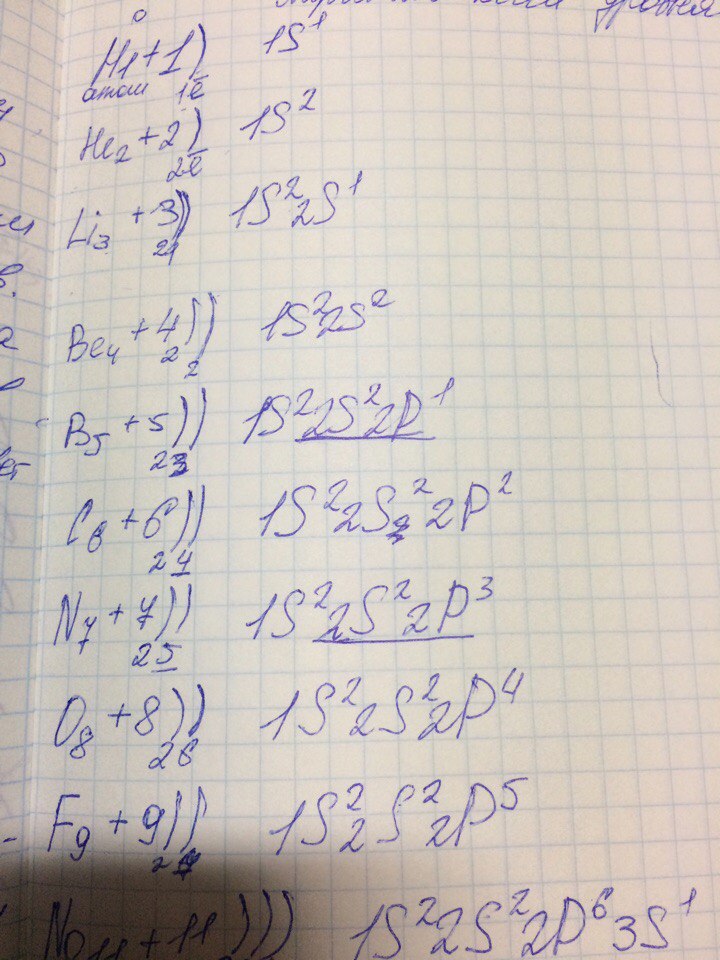 уровня
H1 +1) 1S¹
атом 1ē
He₂ +2) 1S²
2ē
Li₃ +3)) 1S²2S¹
21
Be₄ +4)) 1S²2S²
2 2
B₅ +5)) 1S²2S²2P¹
23
C₆ +6)) 1S²2S²2P²
24
N₇ +7)) 1S²2S²2P³
25
O₈ +8)) 1S²2S²2P⁴
26
F₉ +9)) 1S²2S²2P⁵
27
Na₁₁ +11))) 1S²2S²2P⁶3S¹